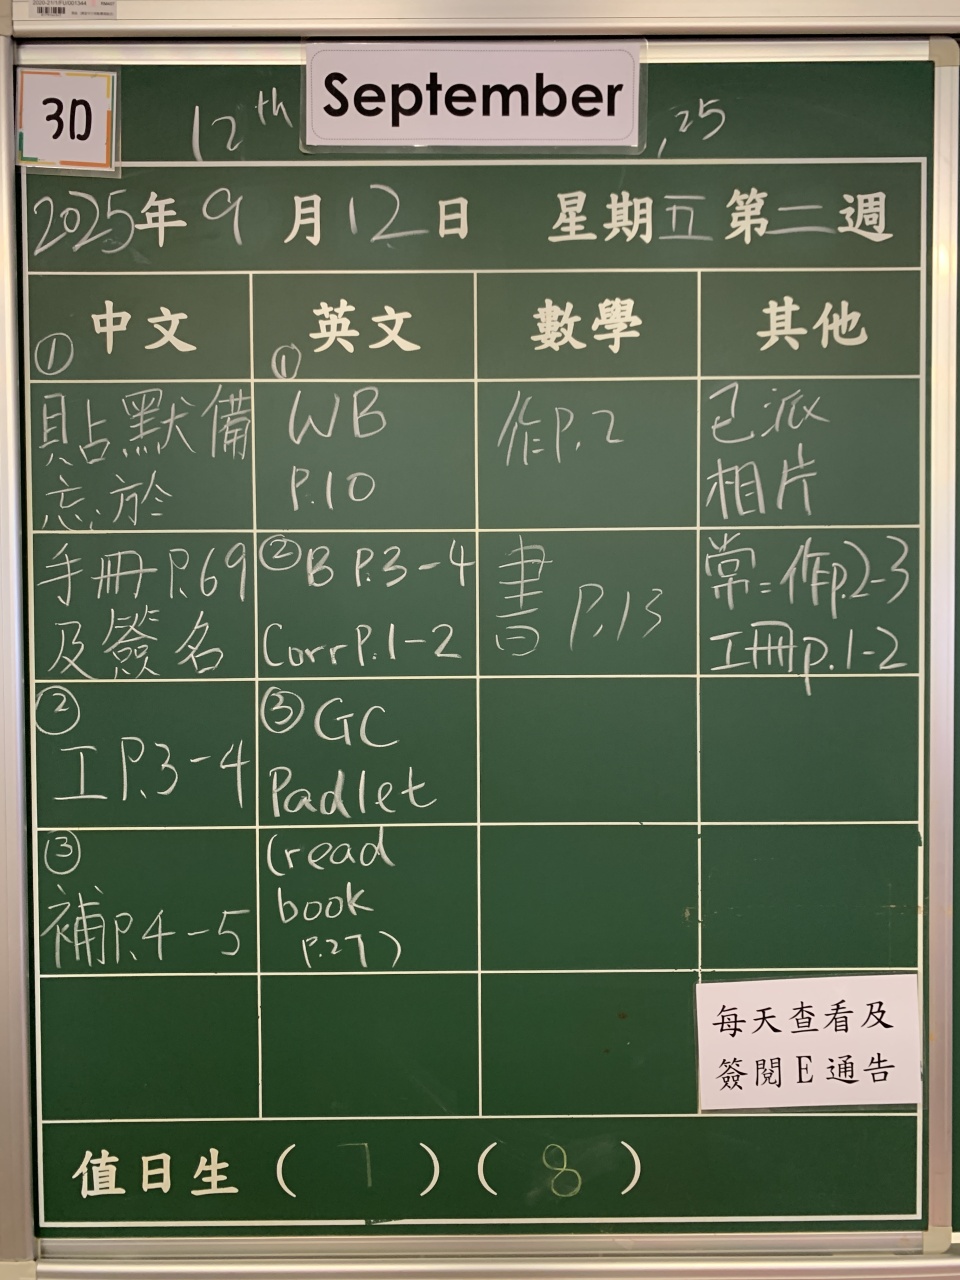 3D
September
12th ,25
2025年9月12日 星期五第二週
中文 英文 數學 其他
①
貼默備
忘於
手冊P.69
及簽名
②
工P.3-4
③
補P.4-5
①
WB
P.10
②B P.3-4
Corr P.1-2
③GC
Padlet
(read
book
P.27)
作P.2
書 P.13
已派
相片
常=作p.2-3
工冊p.1-2
每天查看及
簽閱E通告
值日生(7)(8)